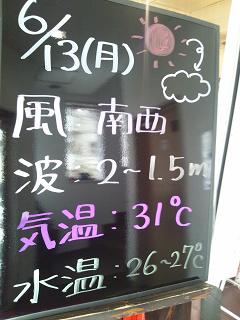 6/13(月)
風:南西
波:2~1.5m
気温:31℃
水温:26~27℃